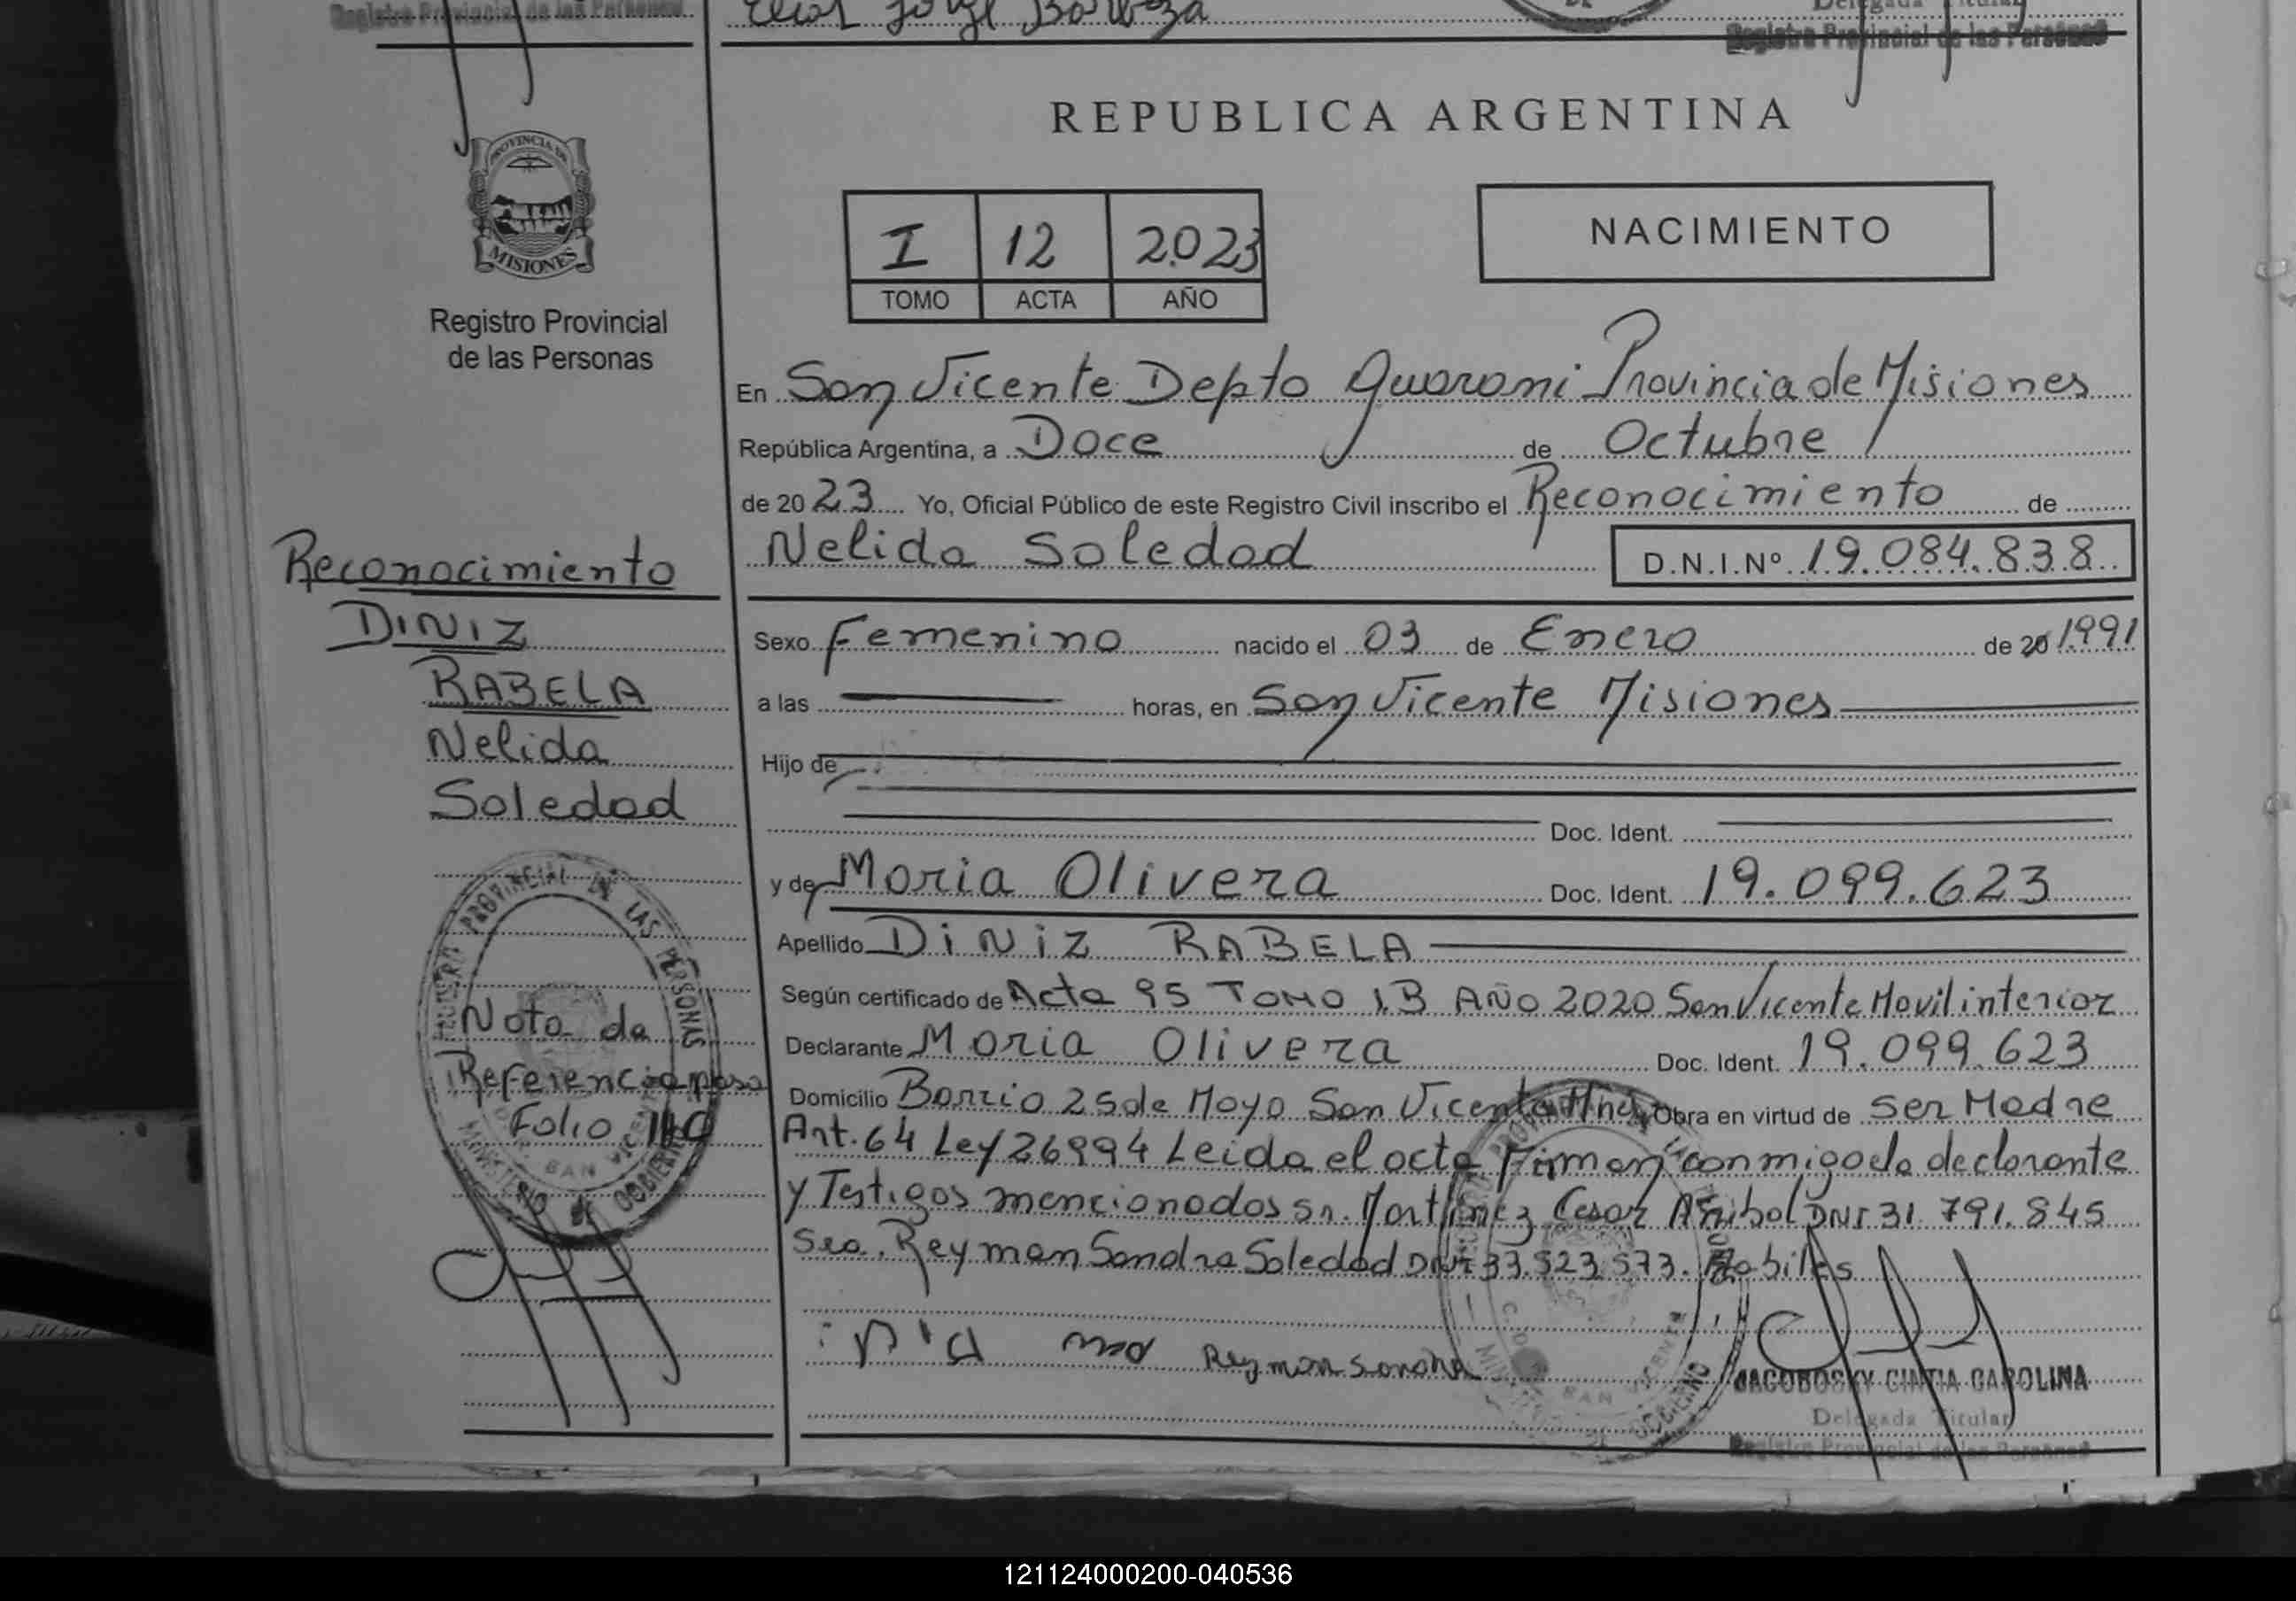 Registro Provincial de las Personas
Elias Jorge Barboza
Delegada Titular
Registro Provincial de las Personas
PROVINCIA DE
MISIONES
Registro Provincial
de las Personas
REPUBLICA ARGENTINA
I 12 2023
TOMO ACTA AÑO
NACIMIENTO
En San Vicente Depto Guarani Provincia de Misiones
República Argentina, a Doce de Octubre
de 2023 Yo, Oficial Público de este Registro Civil inscribo el Reconocimiento de
Nelida Soledad D.N.I.Nº 19.084.838
Sexo Femenino nacido el 03 de Enero de 20 1991
a las horas, en San Vicente Misiones
Hijo de
Doc. Ident.
y de Maria Olivera Doc. Ident. 19.099.623
Apellido DINIZ RABELA
Según certificado de Acta 95 TOMO 1B AÑO 2020 San Vicente Movil interior
Declarante Maria Olivera Doc. Ident. 19.099.623
Domicilio Barrio 25 de Mayo San Vicente Mnes Obra en virtud de ser Madre
Art. 64 Ley 26994 Leida el acta Firman conmigo la declarante
y Testigos mencionados Sr. Martinez Cesar Anibal DNI 31.791.845
Sra. Reyman Sandra Soledad DNI 33.523.573. Habiles
Reyman Sandra
JACOBOSKY CINTIA CAROLINA
Delegada Titular
Registro Provincial de las Personas
Reconocimiento
DINIZ
RABELA
Nelida
Soledad
Nota de
Referencia pasa
Folio 140
REGISTRO PROVINCIAL DE LAS PERSONAS
SAN VICENTE
MINISTERIO DE GOBIERNO
121124000200-040536